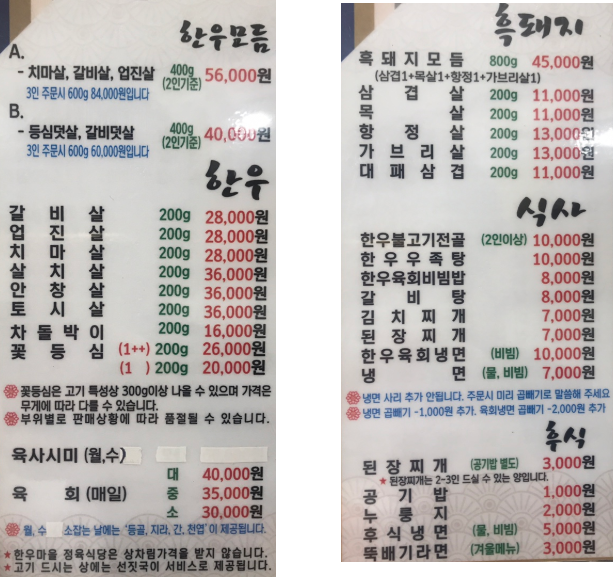 한우모듬
A.
- 치마살, 갈비살, 업진살 400g (2인기준) 56,000원
3인 주문시 600g 84,000원입니다
B.
- 등심덧살, 갈비덧살 400g (2인기준) 40,000원
3인 주문시 600g 60,000원입니다
한우
갈비살 200g 28,000원
업진살 200g 28,000원
치마살 200g 28,000원
살치살 200g 36,000원
안창살 200g 36,000원
토시살 200g 36,000원
차돌박이 200g 16,000원
꽃등심 (1++) 200g 26,000원
(1 ) 200g 20,000원
꽃등심은 고기 특성상 300g이상 나올 수 있으며 가격은
무게에 따라 다를 수 있습니다.
부위별로 판매상황에 따라 품절될 수 있습니다.
육사시미 (월,수)
대 40,000원
육회 (매일) 중 35,000원
소 30,000원
월, 수 소잡는 날에는 '등골, 지라, 간, 천엽'이 제공됩니다.
★ 한우마을 정육식당은 상차림가격을 받지 않습니다.
★ 고기 드시는 상에는 선짓국이 서비스로 제공됩니다.
흑돼지
흑돼지모듬 800g 45,000원
(삼겹1+목살1+항정1+가브리살1)
삼겹살 200g 11,000원
목살 200g 11,000원
항정살 200g 13,000원
가브리살 200g 13,000원
대패삼겹 200g 11,000원
식사
한우불고기전골 (2인이상) 10,000원
한우우족탕 10,000원
한우육회비빔밥 8,000원
갈비탕 8,000원
김치찌개 7,000원
된장찌개 7,000원
한우육회냉면 (비빔) 10,000원
냉면 (물, 비빔) 7,000원
냉면 사리 추가 안됩니다. 주문시 미리 곱빼기로 말씀해 주세요
냉면 곱빼기 -1,000원 추가. 육회냉면 곱빼기 -2,000원 추가
후식
된장찌개 (공기밥 별도) 3,000원
★ 된장찌개는 2-3인 드실 수 있는 양입니다.
공기밥 1,000원
누룽지 2,000원
후식냉면 (물, 비빔) 5,000원
뚝배기라면 (겨울메뉴) 3,000원